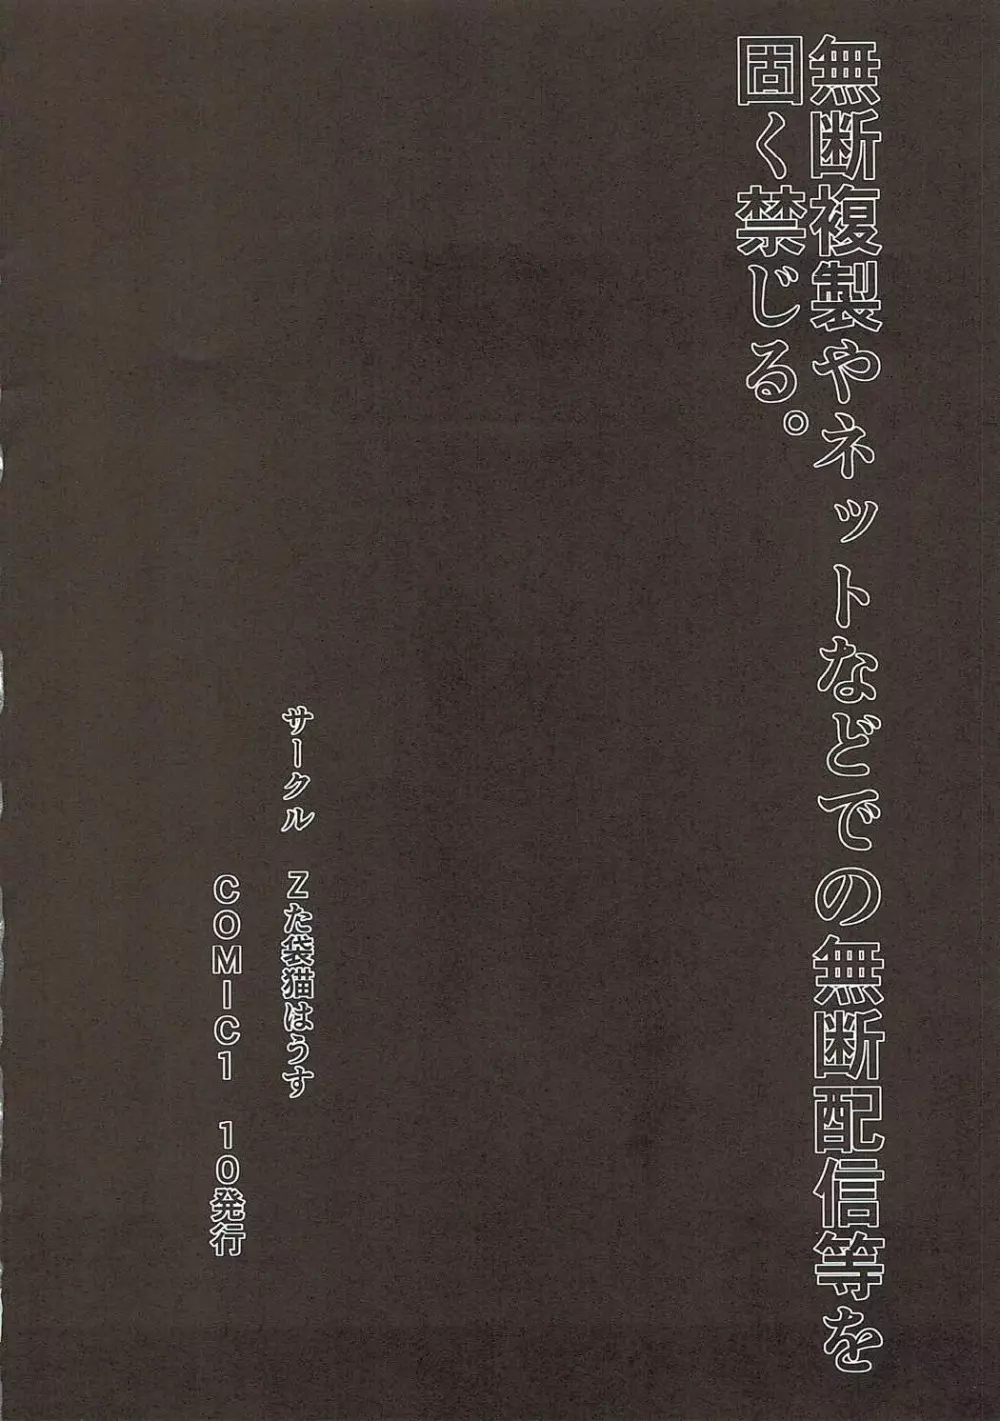 無断複製やネットなどでの無断配信等を
固く禁じる。
サークル　Zた袋猫はうす
COMIC1　10発行